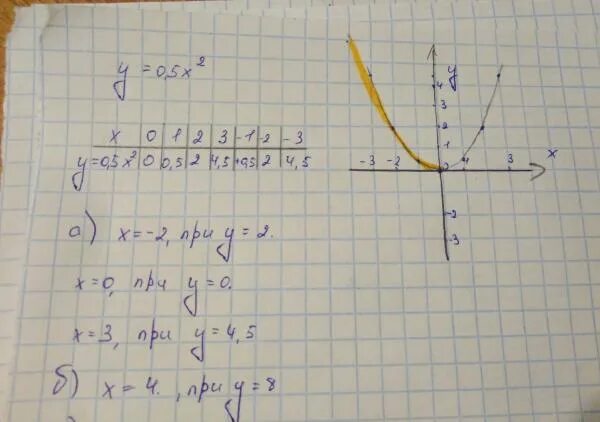 y = 0,5x²
x 0 1 2 3 -1 -2 -3
y=0,5x² 0 0,5 2 4,5 +0,5 2 4,5
а) x=-2, при y=2.
x=0, при y=0.
x=3, при y=4,5
б) x=4. , при y=8
y
4
3
2
1
-3 -2 0 3 x
-2
-3